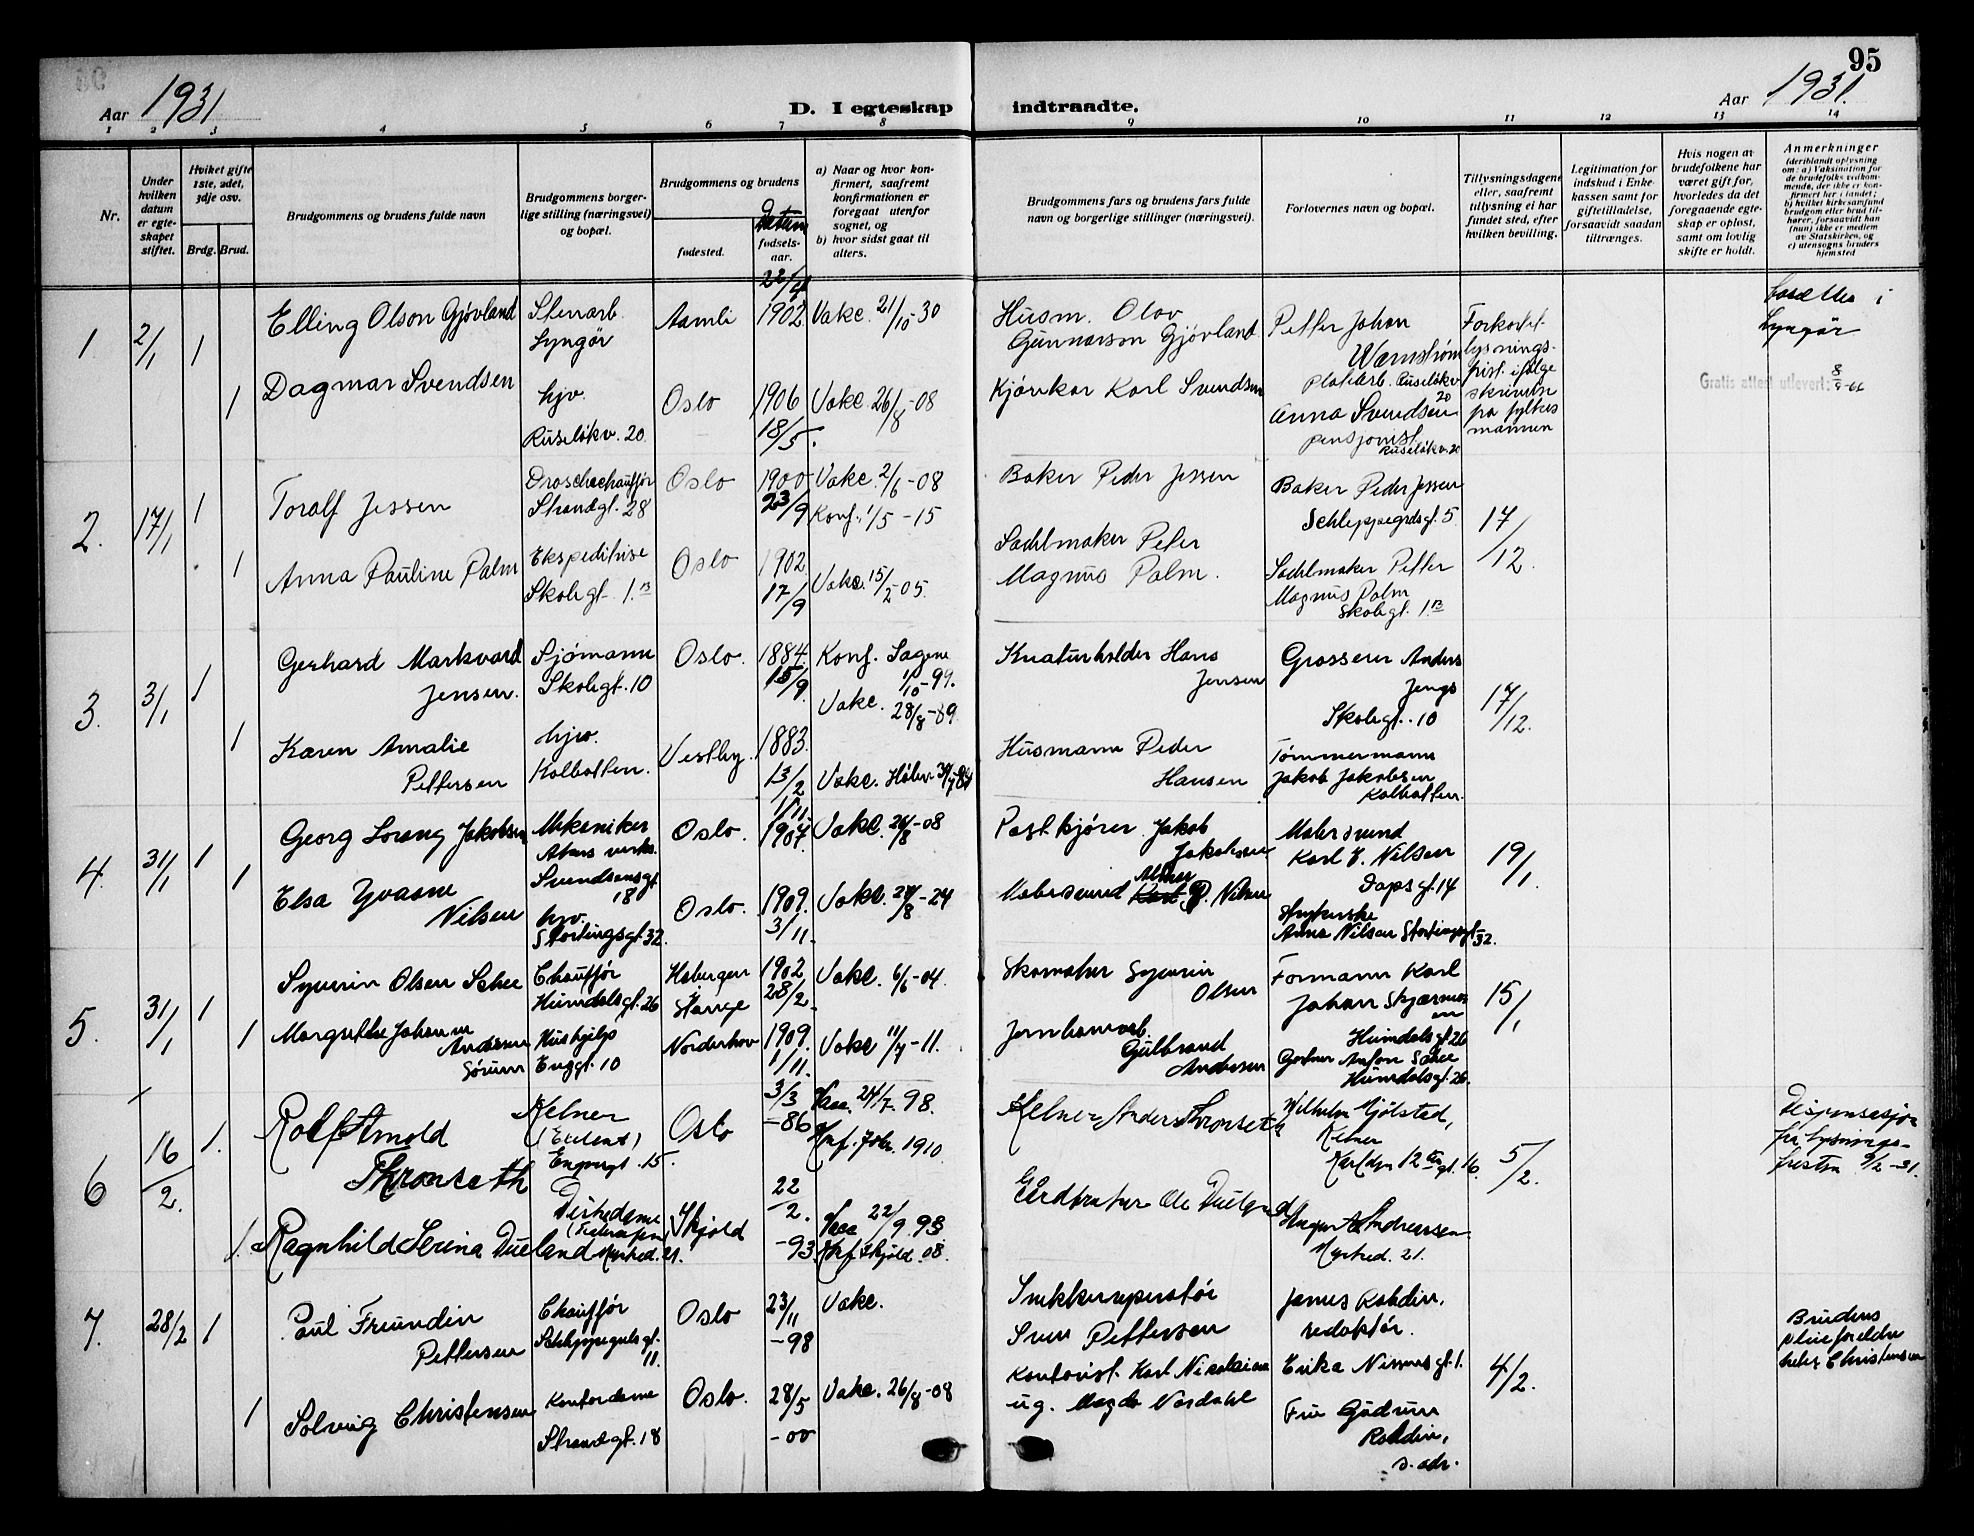 95
Aar 1931
D. I egteskap indtraadte.
Aar 1931.
1 2 3 4 5 6 7 8 9 10 11 12 13 14
Nr.
Under hvilken datum er egteskapet stiftet.
Hvilket gifte 1ste, 2det, 3dje osv.
Brdg. Brud.
Brudgommens og brudens fulde navn
Brudgommens borgerlige stilling (næringsvei) og bopæl.
Brudgommens og brudens
fødested.
Datum
fødselsaar.
a) Naar og hvor konfirmert, saafremt konfirmationen er foregaat utenfor sognet, og
b) hvor sidst gaat til alters.
Brudgommens fars og brudens fars fulde navn og borgerlige stillinger (næringsvei).
Forlovernes navn og bopæl.
Tillysningsdagene eller, saafremt tillysning ei har fundet sted, efter hvilken bevilling.
Legitimation for indskud i Enkekassen samt for giftetilladelse, forsaavidt saadan tiltrænges.
Hvis nogen av brudefolkene har været gift før, hvorledes da det foregaaende egteskap er opløst, samt om lovlig skifte er holdt.
Anmerkninger
(deriblandt oplysning om: a) Vaksination for de brudefolks vedkommende, der ikke er konfirmert her i landet; b) hvilket kirkesamfund brudgom eller brud tilhører, forsaavidt han (hun) ikke er medlem av Statskirken, og c) utensogns bruders hjemsted
1
2/1
1
Elling Olson Gjövland
Stenarb.
Lyngör
Aamli
22/4
1902
Vakc. 21/10-30
Husm. Olov
Gunnarson Gjövland
Petter Johan
Wærnström
Ruselökv. 20
Forkortet
lysnings-
frist ifölge
skrivelse
fra fylkes
mannen
bosættes i
Lyngör
1
Dagmar Svendsen
hjv.
Ruselökv. 20
Oslo
1906
18/5
Vakc. 26/8-08
Karl Svendsen
Anna Svendsen
pensjonist
Ruselökv. 20
Gratis attest utlevert:
2.
17/1
1
Toralf Jessen
Droschechauffør
Strandgt. 28
Oslo
1900
23/9
Vakc. 2/6-08
Konf. 1/5-15
Baker Peder Jessen
Baker Peder Jessen
Schleppegrelsgt. 5
17/12.
1
Anna Pauline Palm
Ekspeditrise
Skolegt. 1.B
Oslo
1902
17/9
Vakc. 15/2-05.
Sadelmaker Peter
Magnus Palm.
Sadelmaker Petter
Magnus Palm
Skolegt. 1B
3.
3/1
1
Gerhard Markvard
Jensen.
Sjömann
Skolegt. 10
Oslo.
1884.
15/9.
Konf. Sagene
1/10-99.
Vakc. 28/8-89.
Hans
Jensen
Grosserer Anders
Jengs
Skolegt. 10
17/12.
1
Karen Amalie
Pettersen
hjv.
Kolbotten.
Vestby.
1883.
13/2
Vakc.
Husmann Peder
Hansen
Tømmermann
Jakob Jakobsen
Kolbotten.
4.
31/1
1
Georg Lorang Jakobsen
Mekaniker
Akers verks.
Svendsensgt. 18
Oslo.
1/11.
1907.
Vakc. 26/8-08
Postkjører Jakob
Jakobsen
Malersvend
Karl E. Nilsen
Dapsgt. 14
19/1.
1
Elsa Yvonne
Nilsen
hjv.
Stortingsgt. 32.
Oslo.
1909.
3/11.
Vakc. 24/8-24
Malersvend Karl Nilsen
Strykerske
Anna Nilsen Stortingsgt. 32.
5.
31/1
1
Syverin Olsen
Chauffør
Heimdalsgt. 26
1902
28/2.
Vakc. 6/6-04.
Skomaker Syverin
Olsen
Formann Karl
Johan
Heimdalsgt. 26
15/1
1
Margrethe Johanne
Andersen
Sørum
Hushjelp
Enggt. 10
Norderhov
1909.
1/11.
Vakc. 11/7-11.
Jernbanearb.
Gulbrand
Andersen
Gartner Anton
Heimdalsgt. 26.
6
16/2.
1.
Rolf Arnold
Thronseth
Kelner
15.
Oslo
3/3
-86
Vacc. 24/7-98.
Konf. Joh. 1910.
Kelner Anders Thronseth
Wilhelm Mjölsted,
Kelner
Karl den 12tes gt. 16
5/2.
Dispensasjon
fra lysnings-
fristen 9/2-31.
1.
Ragnhild Serina Dueland
21.
Skjold
22/2.
-93
Vacc. 22/9 93
Konf. Skjold. 08.
Gårdbruker Ole Dueland
21.
7.
28/2
1
Paul Freundin
Pettersen
Chauffør
Schleppegrelsgt.
11.
Oslo
23/11
-98
Vakc.
Snekkerreparatør
Sven Pettersen
James Rohdin,
redaktør.
Erika Nissensgt. 1.
4/2.
Brudens
pleieforeldre
heter Christensen
1
Solveig Christensen
Kontordame
Strandgt. 18
Oslo.
28/5
-00
Vakc. 26/8-08
Kontorist Karl Nikolaisen
ug. Magda Nordahl
Fru Gudrun
Rohdin,
s. adr.